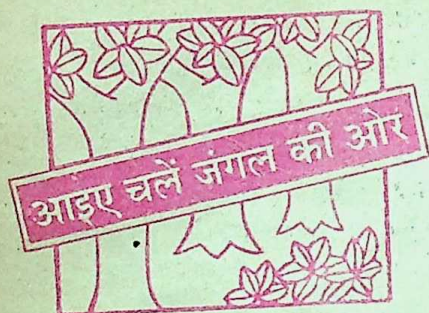 आइए चलें जंगल की ओर